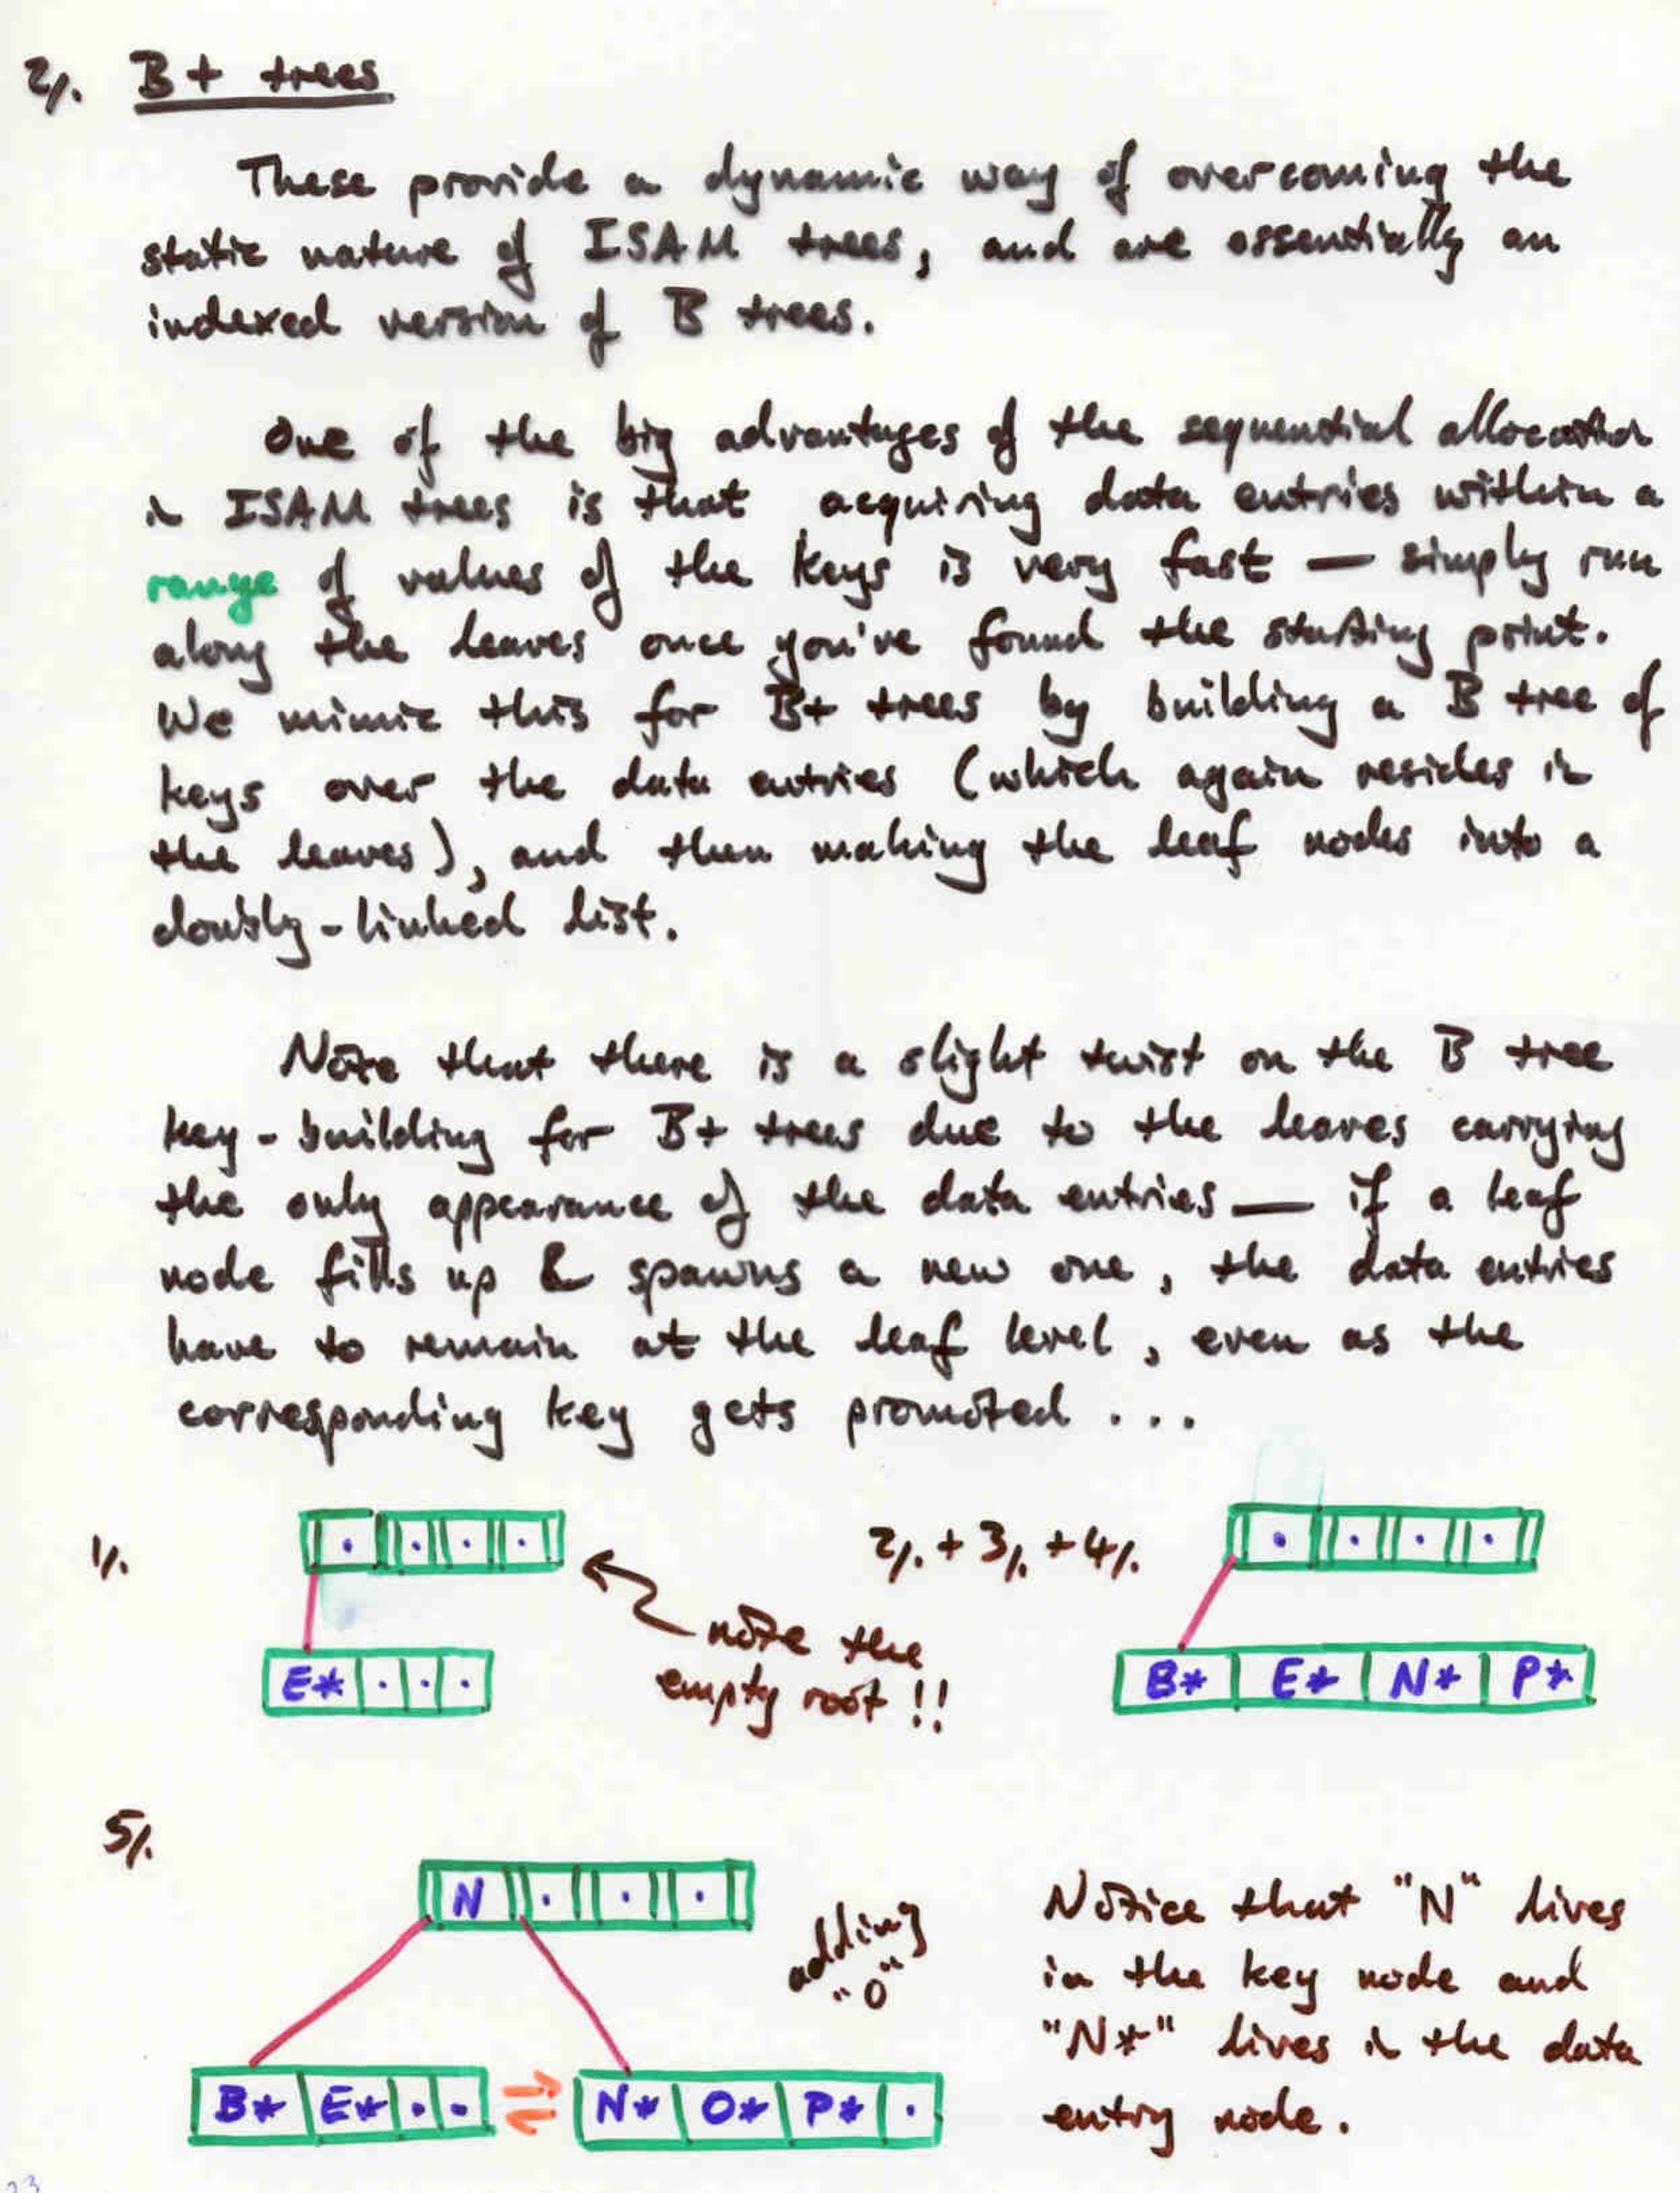 2/. B+ trees
These provide a dynamic way of overcoming the
static nature of ISAM trees, and are essentially an
indexed version of B trees.
One of the big advantages of the sequential allocation
in ISAM trees is that acquiring data entries within a
range of values of the keys is very fast — simply run
along the leaves once you've found the starting point.
We mimic this for B+ trees by building a B tree of
keys over the data entries (which again resides in
the leaves), and then making the leaf nodes into a
doubly-linked list.
Note that there is a slight twist on the B tree
key-building for B+ trees due to the leaves carrying
the only appearance of the data entries — if a leaf
node fills up & spawns a new one, the data entries
have to remain at the leaf level, even as the
corresponding key gets promoted ...
1/.
note the
empty root !!
E* . . .
2/. + 3/. + 4/.
B* E* N* P*
5/.
N . . .
adding
"O"
B* E* . .
N* O* P* .
Notice that "N" lives
in the key node and
"N*" lives in the data
entry node.